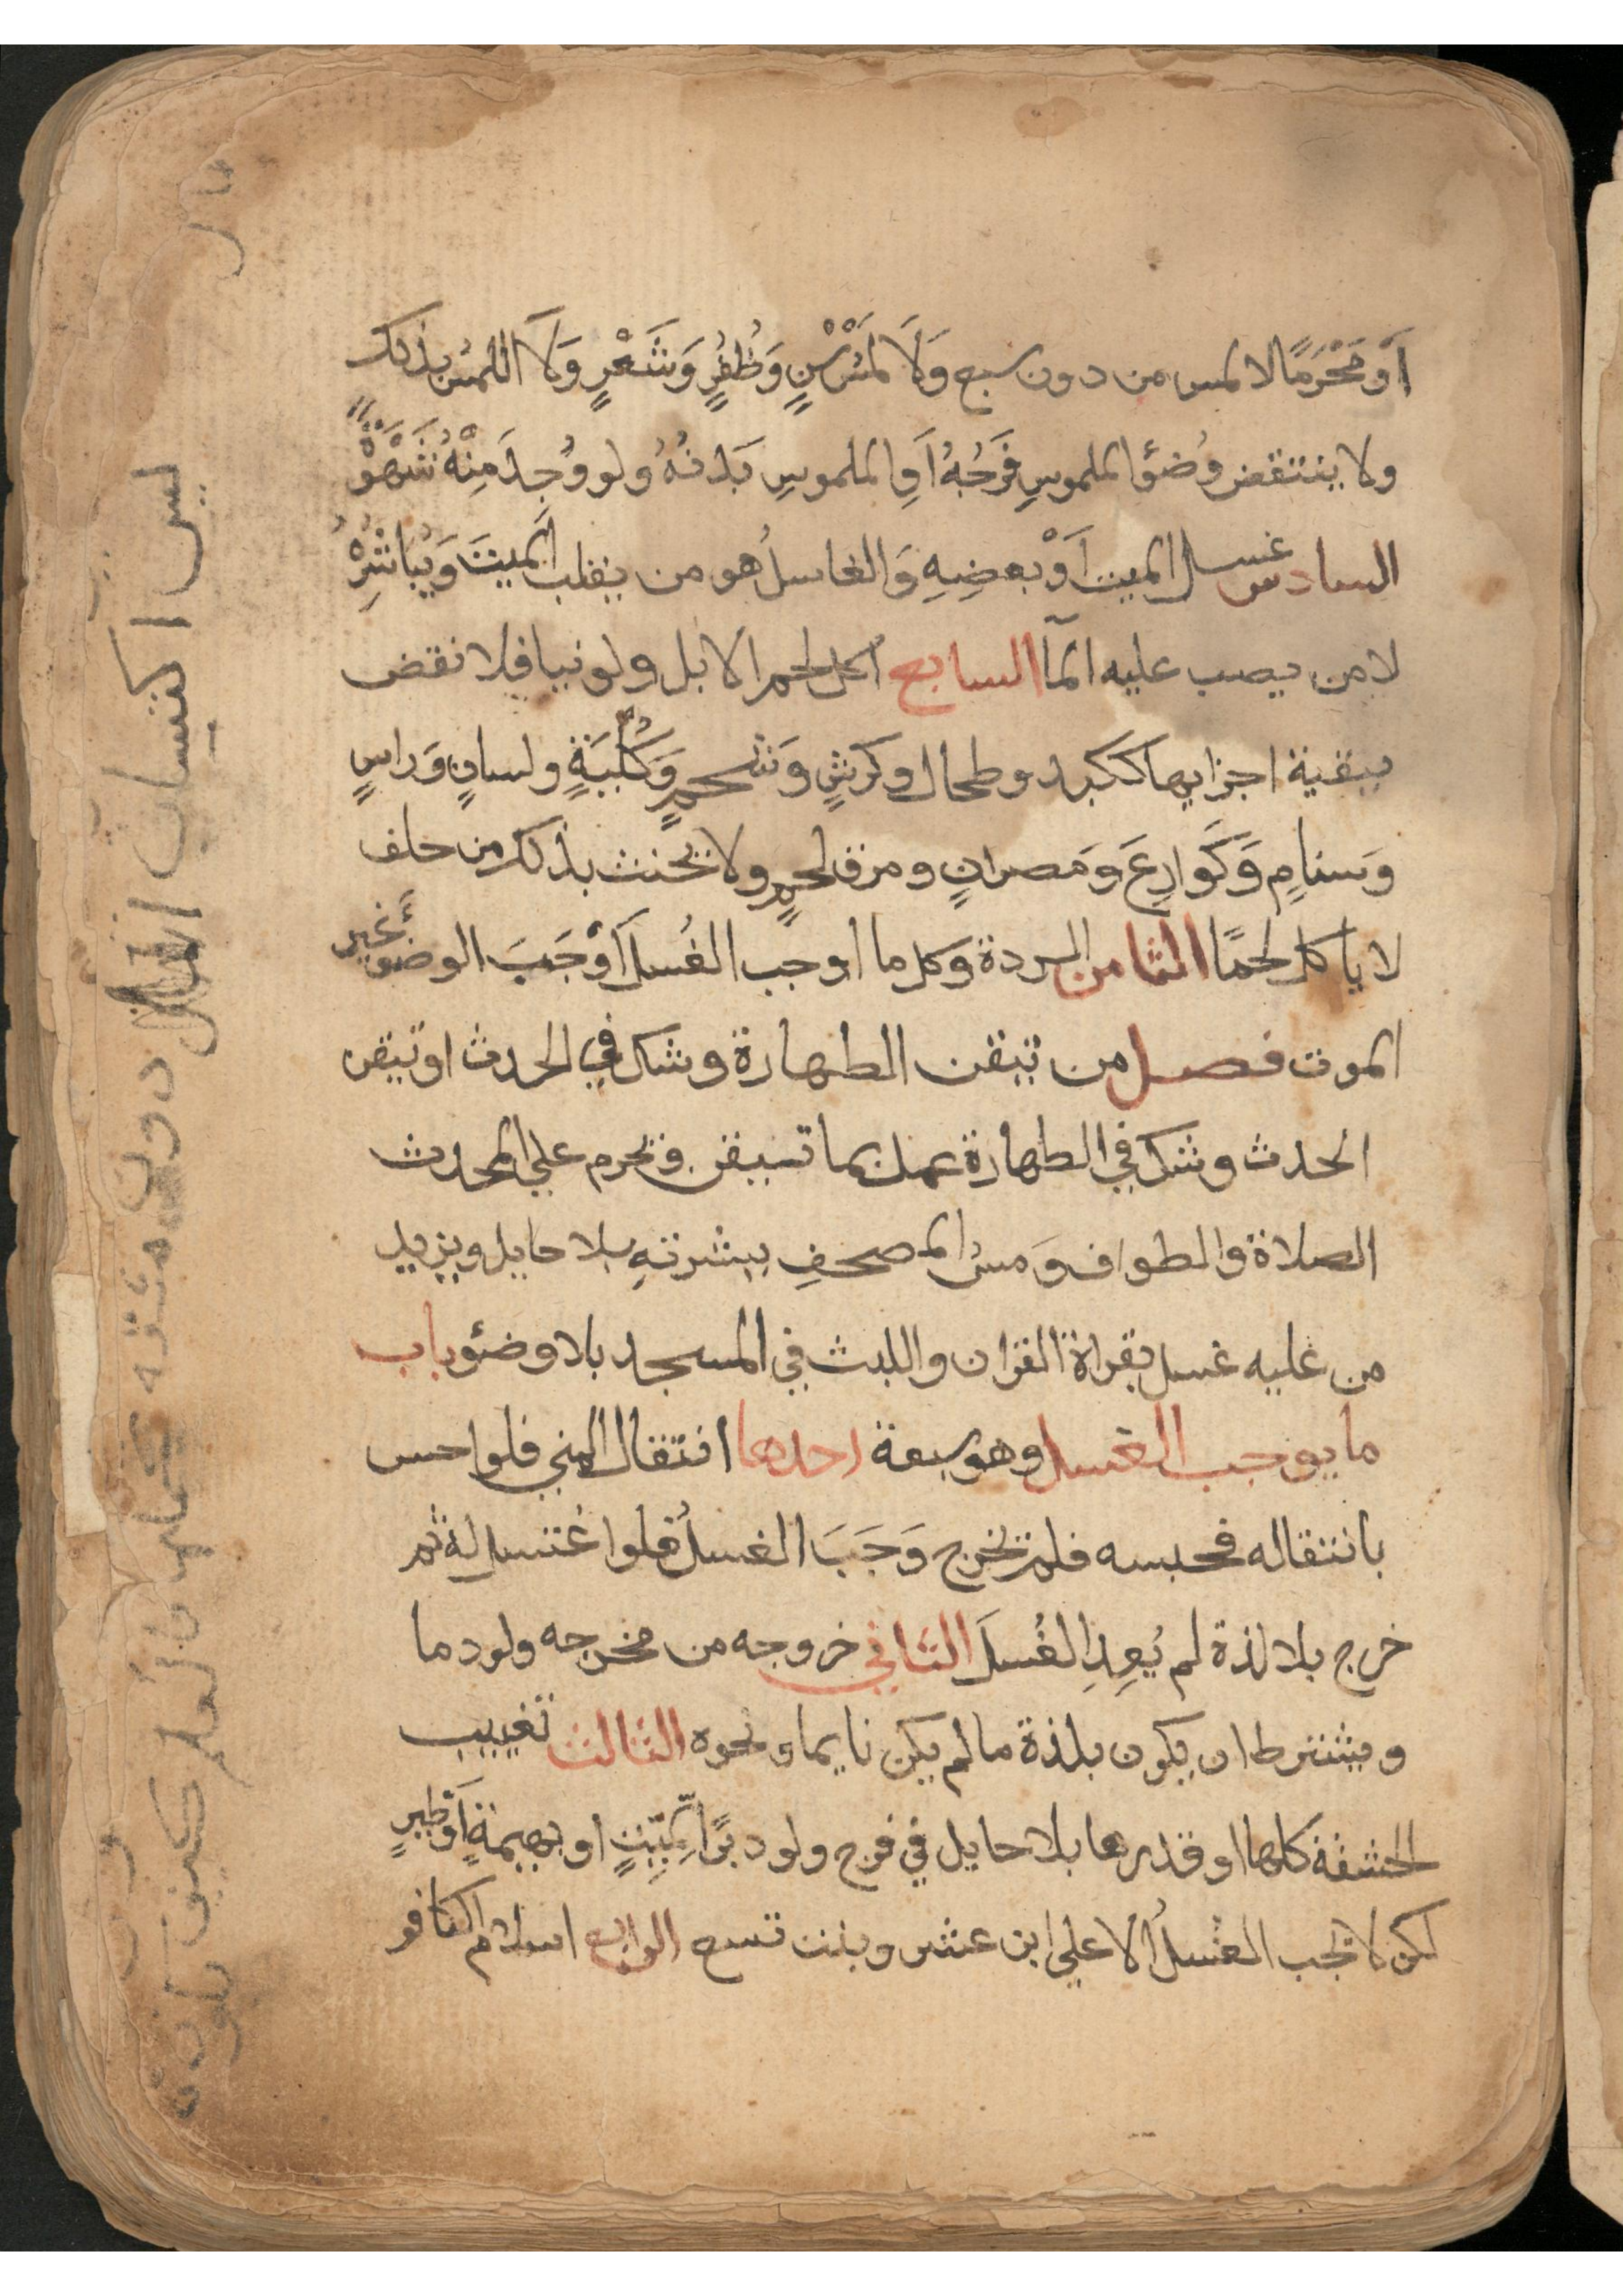 أَوْ مَحْرَمًا لا لمس من دون سبع وَلَا لمَسْ سِنٍ وَظُفُرٍ وَشَعْرٍ وَلَا اللمسُ بذلك
ولا ينتقض وُضئو الملموسِ فَرَجُهُ أَوِ الملموسِ بَدنُهُ ولو وُجِدَ مِنْهُ شَهْوَةٌ
السادس غسل الميت أَوْ بعضِهِ وَالغاسلُ هو من يقلب الميتَ وَيُبَاشْرُهُ
لا من يصب عليه المآ السابع اكل لحم الابل ولو نيا فلا نقض
ببقية اجزايها ككبد وطحال وكَرَشٍ وَشحمٍ وَكُليَةٍ ولسانٍ وَراسٍ
وَسنامٍ وَكَوَارِعَ وَمصرانٍ ومرق لحمٍ ولا يحنث بذلك من حلف
لا ياكل لحمًا الثامن الردة وَكل ما اوجب الغُسلَ أَوْجَبَ الوضوَ غير
الموت فصل من تيقن الطهارة وشك في الحدث او تيقن
الحدث وشك في الطهارة عمل بما تيقن ويحرم علي المحدث
الصلاة والطواف وَمسُ المصحفِ ببشرتهِ بلا حايل ويزيد
من عليه غسل بقراة القران واللبث في المسجد بلا وضئو باب
ما يوجب الغسل وهو سبعة احدها انتقال المني فلو احس
بانتقاله فحبسه فلم يخرج وَجَبَ الغسلُ فلو اغتسل له ثم
خرج بلا لذة لم يُعِدِ الغُسلَ الثاني خروجه من مخرجه ولو دما
ويشترط ان يكون بلذة ما لم يكن نايما ونحوه الثالث تغييب
الحشفة كلها او قدرها بلا حايل في فرج ولو دبرًا لميِّتٍ او بهيمةٍ أَوْ طيرٍ
لكن لا يجب الغسلُ الا علي ابن عشر وبنت تسع الرابع اسلام الكافر
ليس اكتساب دون كل بالعلم